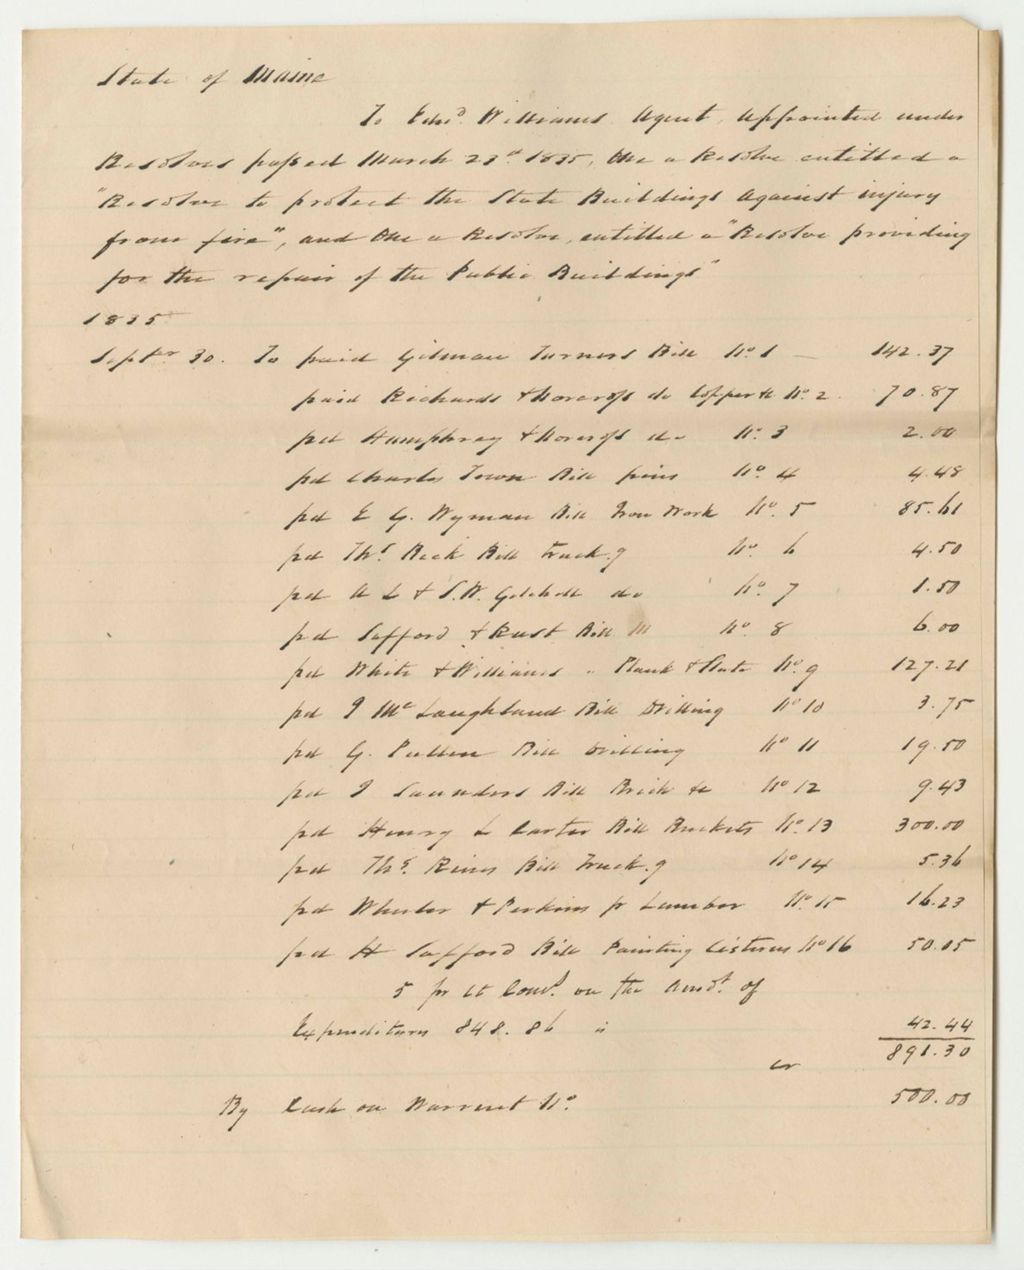 State of Maine
To Edwd. Williams Agent, Appointed under
Resolves passed March 23d 1835, One a Resolve entitled a
"Resolve to protect the State Buildings against injury
from fire", and One a Resolve, entitled a "Resolve providing
for the repair of the Public Buildings"
1835
Septr 30. To paid Gilman Turners Bill No 1 — 142.37
paid Richards & Norcross do Copper &c No. 2. 70.87
pd Humphrey & Norcross do No. 3 2.00
pd Charles Town Bill pins No. 4 4.48
pd E G. Wyman Bill Iron Work No. 5 85.61
pd Ths Beck Bill Truck.g No. 6 4.50
pd A L & S.W. do No. 7 1.50
pd Safford & Rust Bill No. 8 6.00
pd White & Williams " Plank & Slate No. 9 127.21
pd J Mc Laughland Bill Drilling No 10 3.75
pd G. Pullen Bill Drilling No 11 19.50
pd J Saunders Bill Brick &c No 12 9.43
pd Henry L Carter Bill Buckets No. 13 300.00
pd Ths. Rines Bill Truck.g No 14 5.36
pd Wheeler & Perkins pr Lumber No. 15 16.23
pd H Safford Bill Painting Cisterns No 16 50.05
5 pr ct Coms. on the Amot. of
Expenditures 848.86 is 42.44
891.30
cr
By Cash on Warrent No. 500.00